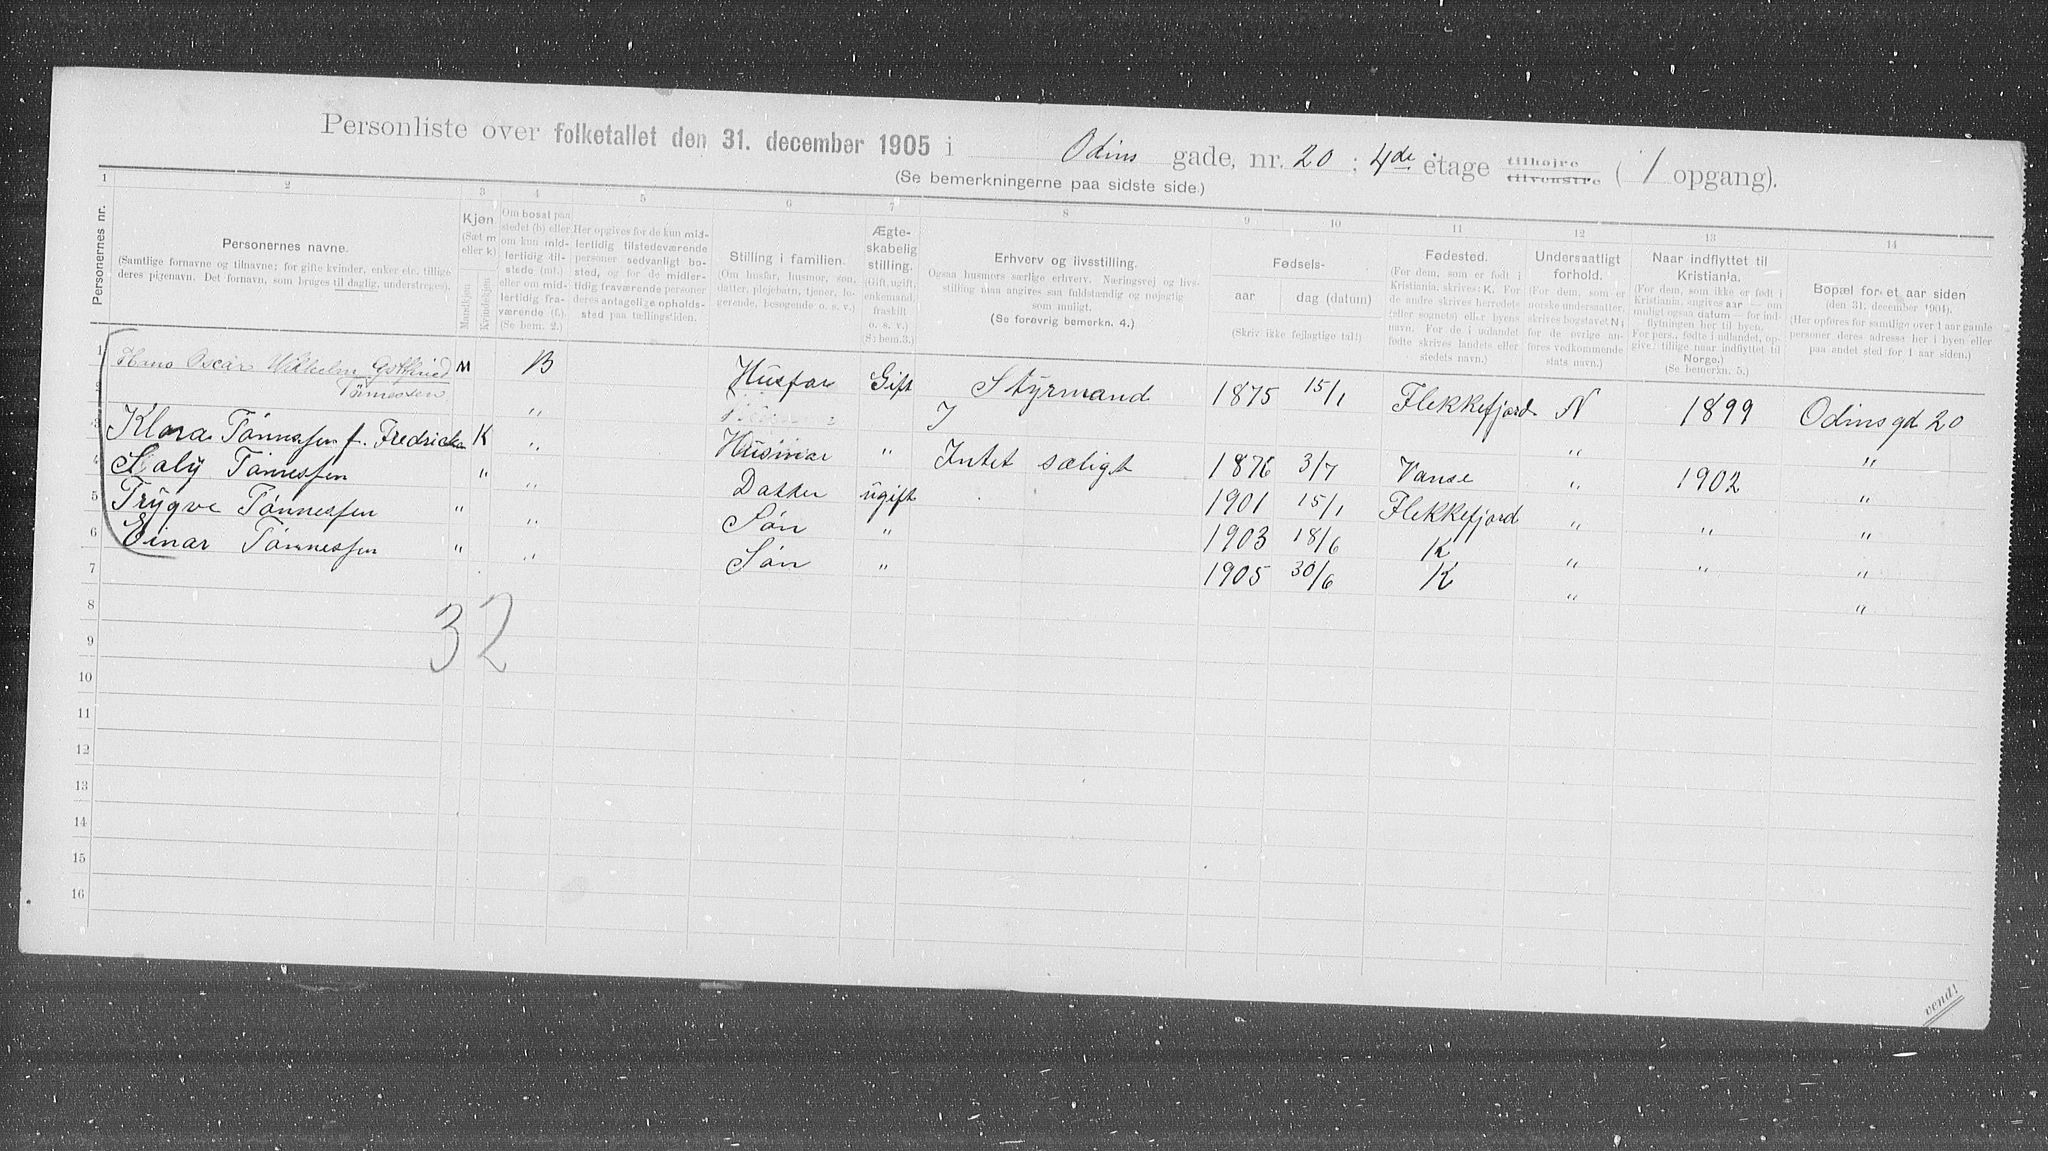 Personliste over folketallet den 31. december 1905 i Odins gade, nr. 20 ; 4de etage tilhøjre tilvenstre ( 1 opgang).
(Se bemerkningerne paa sidste side.)
1 2 3 4 5 6 7 8 9 10 11 12 13 14
Personernes nr.
Personernes navne.
(Samtlige fornavne og tilnavne; for gifte kvinder, enker etc. tillige
deres pigenavn. Det fornavn, som bruges til daglig, understreges).
Kjøn
(Sæt m
eller k)
Mandkjøn
Kvindekjøn
Om bosat paa
stedet (b) eller
om kun mid-
lertidig til-
stede (mt.)
eller om mid-
lertidig fra-
værende (f.).
(Se bem. 2.)
Her opgives for de kun mid-
lertidig tilstedeværende
personer sedvanligt bo-
sted, og for de midler-
tidig fraværende personer
deres antagelige opholds-
sted paa tællingstiden.
Stilling i familien.
(Om husfar, husmor, søn,
datter, plejebarn, tjener, lo-
gerende, besøgende o. s. v.)
Ægte-
skabelig
stilling.
(Gift, ugift,
enkemand,
fraskilt
o. s. v.)
(Se bem. 3.)
Erhverv og livsstilling.
Ogsaa husmors særlige erhverv. Næringsvej og livs-
stilling maa angives saa fuldstændig og nøjagtig
som muligt.
(Se forøvrig bemerkn. 4.)
Fødsels-
aar dag (datum)
(Skriv ikke fejlagtige tal!)
Fødested.
(For dem, som er født i
Kristiania, skrives: K. For
de andre skrives herredets
(eller sognets) eller byens
navn. For de i udlandet
fødte skrives landets eller
stedets navn.)
Undersaatligt
forhold.
(For dem, som er
norske undersaatter,
skrives bogstavet N;
for de øvrige an-
føres vedkommende
stats navn.)
Naar indflyttet til
Kristiania.
(For dem, som ikke er født i
Kristiania, angives aar — om
muligt ogsaa datum — for ind-
flytningen her til byen.
For pers., fødte i udlandet, op-
give tillige naar indflyttet til
Norge.)
(Se bemerkn. 5.)
Bopæl for et aar siden
(den 31. december 1904).
(Her opføres for samtlige over 1 aar gamle
personer deres adresse her i byen eller
paa andet sted for 1 aar siden.)
1 Hans Oscar Wilhelm Gottfried M B Husfar Gift Styrmand 1875 15/1 Flekkefjord N 1899 Odinsgd 20
Tønnessen
Klara Tønnessen f. Fredricksen K " Husmor " Intet særligt 1876 3/7 Vanse " 1902 "
Tønnessen " " Datter ugift 1901 15/1 Flekkefjord " "
Trygve Tønnessen " " Søn " 1903 18/6 K " " "
Einar Tønnessen " " Søn " 1905 30/6 K " " "
4
5
6
7
8
32
9
10
11
12
13
14
15
16
vend!